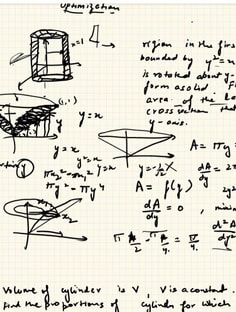 optimization
x=1
region in the firs
bounded by y²=x
is rotated about y-
form a solid. F
area of the la
cross section tha
y-axis.
(1,1)
y y=x
y=x
y²=x y=x
y
πx₂²-πx₁²
πy²-πy⁴
x₁
x₂
A = πy
A = f(y)
dA/dy = 0 ,
dA/dy = 2
π/2 - π/4 = π/4.
Volume of cylinder is V, V is a constant.
find the proportions of cylinder for which